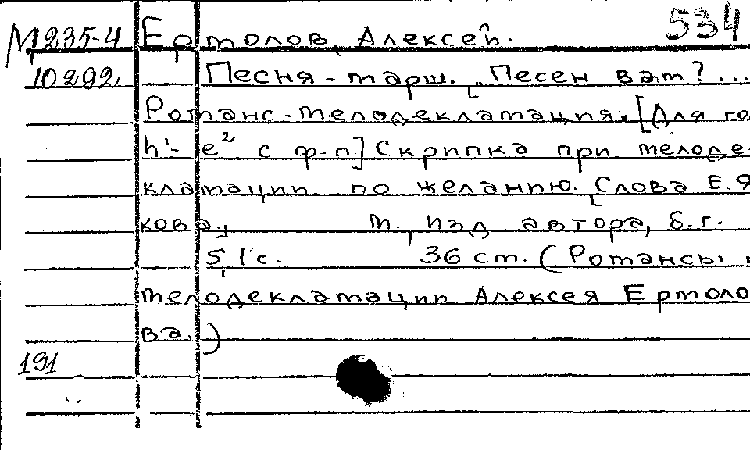 М 235-4 Ермолов, Алексей. 534
10292. Песня-марш. [Песен вам?...
Романс-мелодекламация. [Для го
h¹- e² с ф-п] Скрипка при мелоде-
кламации по желанию. [Слова Е.Я
кова.] М., изд автора, б.г.
5,1 с. 36 см. (Романсы и
мелодекламации Алексея Ермоло
ва.)
191